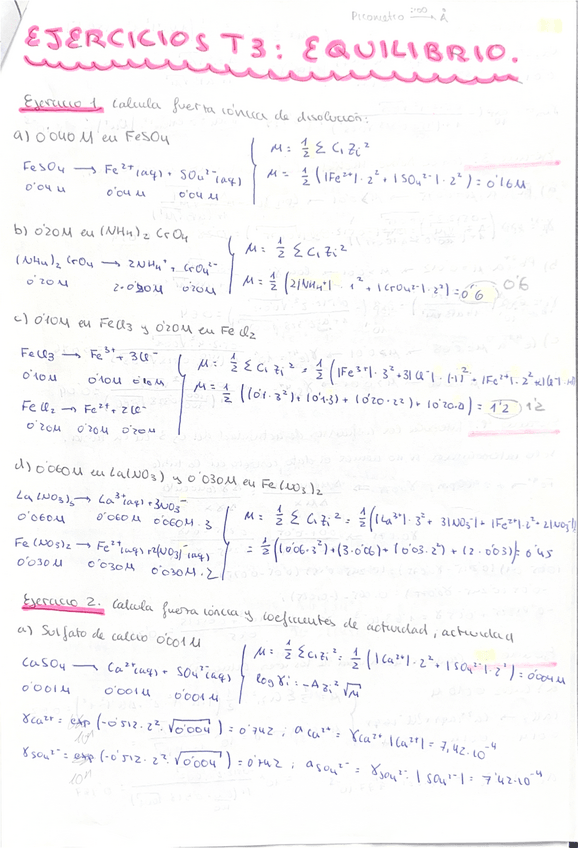 Picómetro :100 → Å
EJERCICIOS T3: EQUILIBRIO.
Ejercicio 1. Calcula fuerza iónica de disolución:
a) 0'040 M en FeSO4
FeSO4 → Fe²⁺(aq) + SO4²⁻(aq)
0'04 M 0'04 M 0'04 M
μ = 1/2 Σ Ci Zi²
μ = 1/2 (|Fe²⁺|·2² + |SO4²⁻|·2²) = 0'16 M
b) 0'20M en (NH4)2 CrO4
(NH4)2 CrO4 → 2NH4⁺ + CrO4²⁻
0'20 M 2·0'20M 0'20M
μ = 1/2 Σ Ci Zi²
μ = 1/2 (2|NH4⁺|·1² + |CrO4²⁻|·2²) = 0'6 0'6
c) 0'10M en FeCl3 y 0'20M en FeCl2
FeCl3 → Fe³⁺ + 3Cl⁻
0'10M 0'10M 0'10M
FeCl2 → Fe²⁺ + 2Cl⁻
0'20M 0'20M 0'20M
μ = 1/2 Σ Ci Zi² = 1/2 (|Fe³⁺|·3² + 3|Cl⁻|·(-1)² + |Fe²⁺|·2² +
μ = 1/2 ((0'1·3²) + (0'1·3) + (0'20·2²) + (0'20·2)) = 1'2 1'2
d) 0'060M en La(NO3) y 0'030M en Fe(NO3)2
La(NO3)3 → La³⁺(aq) + 3NO3⁻
0'060M 0'060M 0'060M·3
Fe(NO3)2 → Fe²⁺(aq) + 2|NO3|⁻(aq)
0'030M 0'030M 0'030M·2
μ = 1/2 Σ Ci Zi² = 1/2 (|La³⁺|·3² + 3|NO3⁻| + |Fe²⁺|·2² + 2|NO3⁻|)
= 1/2 ((0'06·3²) + (3·0'06) + (0'03·2²) + (2·0'03)) = 0'45
Ejercicio 2. Calcula fuerza iónica y coeficientes de actividad, actividad
a) Sulfato de calcio 0'001M
CaSO4 → Ca²⁺(aq) + SO4²⁻(aq)
0'001M 0'001M 0'001M
μ = 1/2 Σ Ci Zi² = 1/2 (|Ca²⁺|·2² + |SO4²⁻|·2²) = 0'004 M
log γi = -A zi² √μ
γCa²⁺ = exp (-0'512·2²·√0'004) = 0'742 ; aCa²⁺ = γCa²⁺·|Ca²⁺| = 7,42·10⁻⁴
10^
γSO4²⁻ = exp (-0'512·2²·√0'004) = 0'742 ; aSO4²⁻ = γSO4²⁻·|SO4²⁻| = 7'42·10⁻⁴
10^